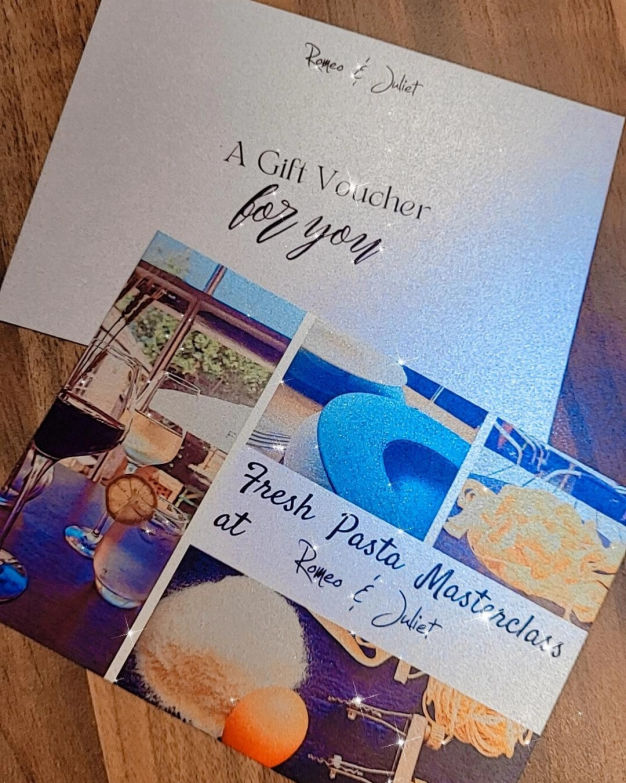 Romeo & Juliet
A Gift Voucher
for you
Fresh Pasta Masterclass
at Romeo & Juliet